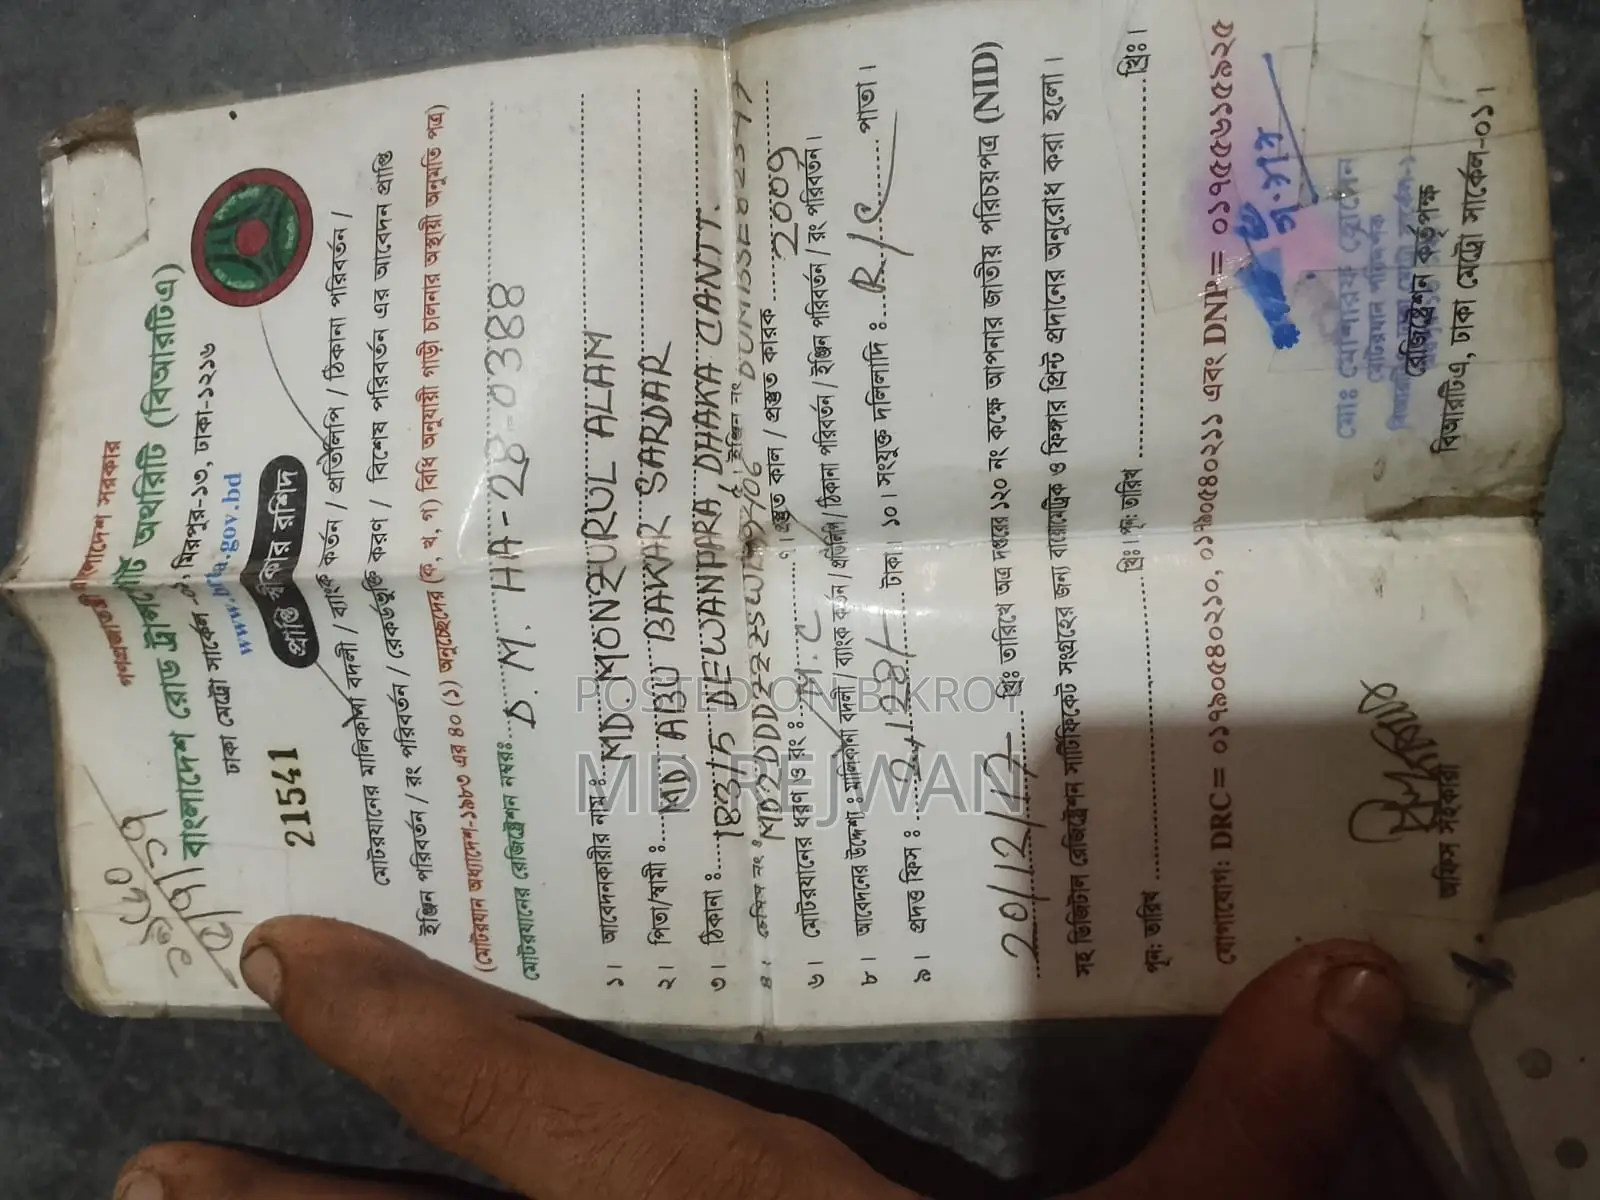 গণপ্রজাতন্ত্রী বাংলাদেশ সরকার
বাংলাদেশ রোড ট্রান্সপোর্ট অথরিটি (বিআরটিএ)
ঢাকা মেট্রো সার্কেল -০১, মিরপুর-১৩, ঢাকা-১২১৬
www.brta.gov.bd
21541
প্রাপ্তি স্বীকার রশিদ
মোটরযানের মালিকানা বদলী / ব্যাংক কর্তন / প্রতিলিপি / ঠিকানা পরিবর্তন /
ইঞ্জিন পরিবর্তন / রং পরিবর্তন / রেকর্ডভুক্তি করণ / বিশেষ পরিবর্তন এর আবেদন প্রাপ্তি
(মোটরযান অধ্যাদেশ-১৯৮৩ এর ৪০ (১) অনুচ্ছেদের (ক, খ, গ) বিধি অনুযায়ী গাড়ী চালনার অস্থায়ী অনুমতি পত্র)
মোটরযানের রেজিষ্ট্রেশন নম্বরঃ D. M. HA-28-0388
১। আবেদনকারীর নাম : MD. MONZURUL ALAM
২। পিতা/স্বামী : MD ABU BAKAR SARDAR
৩। ঠিকানা : 183/5 DEWANPARA, DHAKA CANTT.
৪। চেসিস নং : ইঞ্জিন নং
৬। মোটরযানের ধরণ ও রং : M.C ৭। প্রস্তুত কাল / প্রস্তুত কারক 2009
৮। আবেদনের উদ্দেশ্য : মালিকানা বদলী / ব্যাংক কর্তন / প্রতিলিপি / ঠিকানা পরিবর্তন / ইঞ্জিন পরিবর্তন / রং পরিবর্তন।
৯। প্রদত্ত ফিস : 2,128/- টাকা। ১০। সংযুক্ত দলিলাদি : R/C পাতা।
20/12/17 খ্রিঃ তারিখে অত্র দপ্তরের ১২০ নং কক্ষে আপনার জাতীয় পরিচয়পত্র (NID)
সহ ডিজিটাল রেজিষ্ট্রেশন সার্টিফিকেট সংগ্রহের জন্য বায়োমেট্রিক ও ফিঙ্গার প্রিন্ট প্রদানের অনুরোধ করা হলো।
পূন: তারিখ খ্রিঃ। পূন: তারিখ খ্রিঃ।
যোগাযোগ: DRC= ০১৭৯০৫৪০২১০, ০১৭৯০৫৪০২১১ এবং DNP= ০১৭৫৫৬১৫৯২৫
মোঃ মোশারফ হোসেন
মোটরযান পরিদর্শক
অফিস সহকারী
রেজিষ্ট্রেশন কর্তৃপক্ষ
বিআরটিএ, ঢাকা মেট্রো সার্কেল-০১।
POSTED ON BIKROY
MD REJWAN